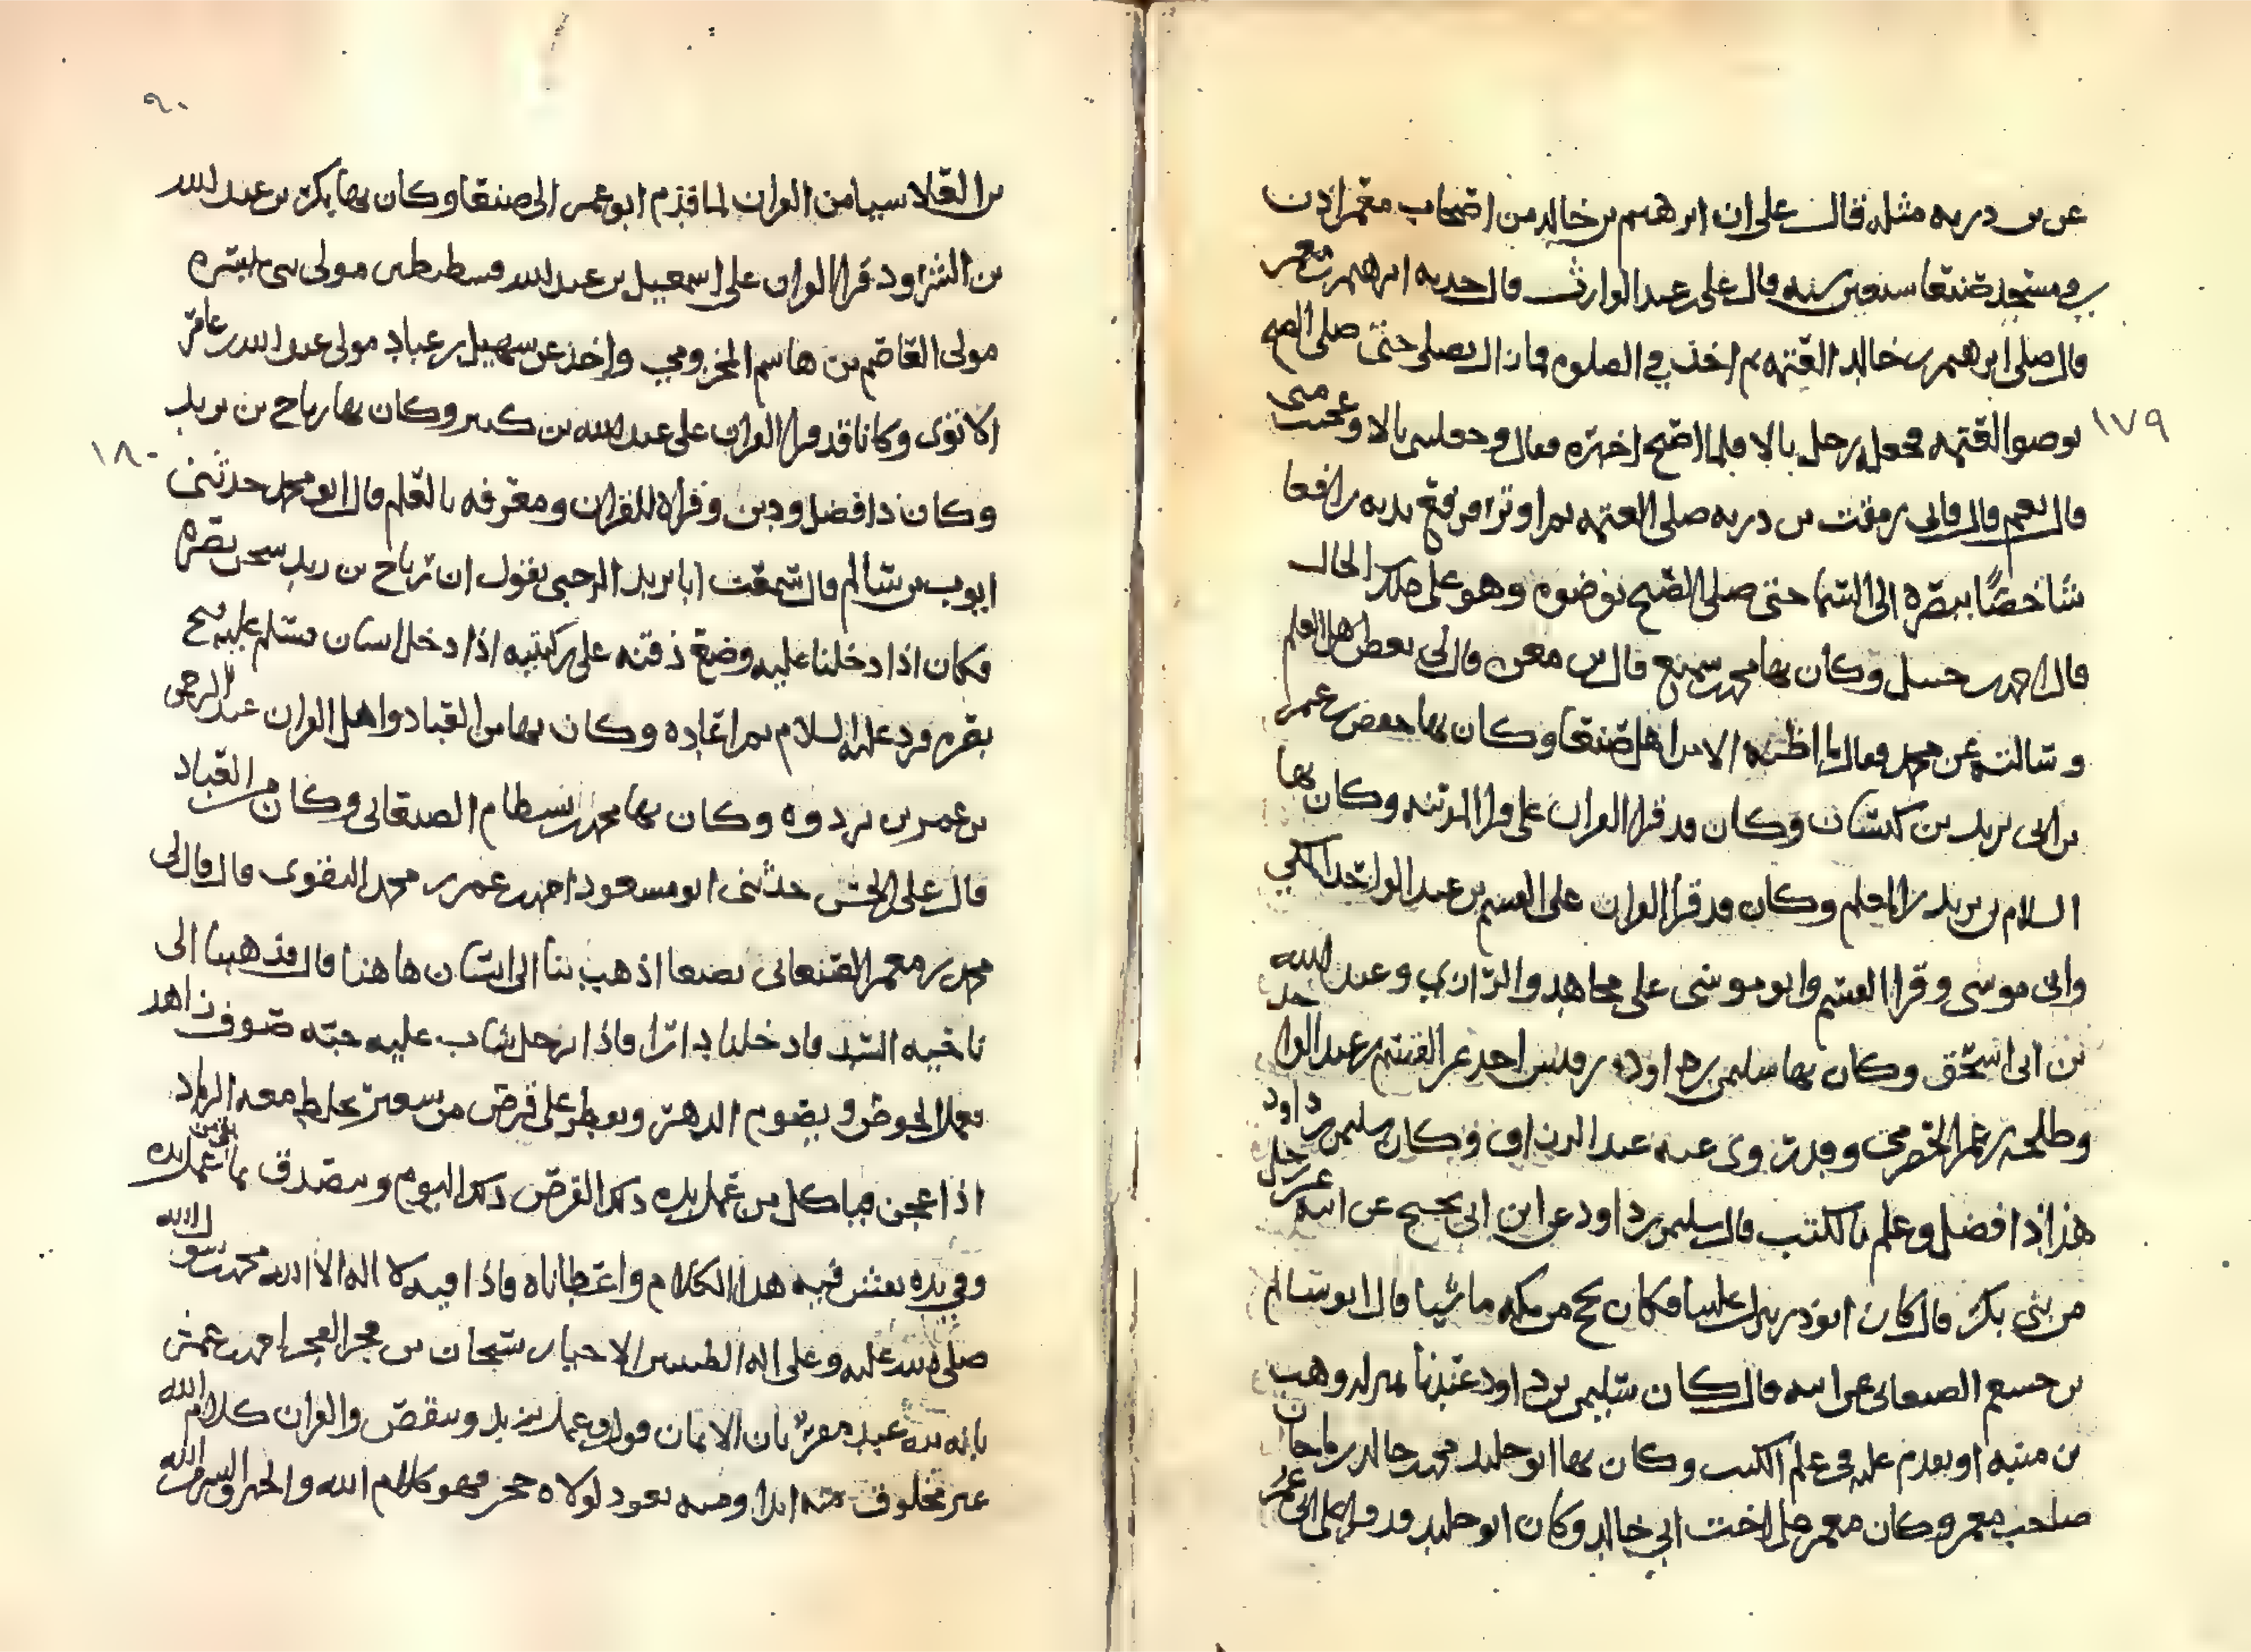 عن بن دربه مثله قال على ان ابرهيم بن خالد من اصحاب معمر اذن
في مسجد صنعا سبعين سنه قال على عبد الوارث قال حدثه ابرهيم بن معمر
قال صلى ابرهيم بن خالد العتمه ثم اخذ في الصلوه فما زال يصلي حتى صلى الصبح
بوضوا العتمه فجعل رجل بالا فلما اصبح اخبره فقال وجعلت بالا وعجبت منى
١٧٩
قال نعيم قال قاني رمقت بن دربه صلى العتمه ثم اوتر ورفع يديه رافعا
شاخصا ببصره الى السما حتى صلى الصبح بوضوه وهو على تلك الحال
قال احمد بن حنبل وكان بها محمد بن سميع قال بن معين قال لي بعض اهل العلم
وسالته عن محمد فقال ما اظنه الا من اهل صنعا وكان بها حفص بن عمر
بن ابي يزيد بن كيسان وكان قد قرا القران على قرا المدينه وكان بها
السلام بن يزيد المعلم وكان قد قرا القران على القسم بن عبد الواحد المكي
وابي موسى وقرا القسم وابو موسى على مجاهد والرازي وعبد الله
بن ابي اسحق وكان بها سليمن بن داود بن قيس اخذ عن القسم بن عبد الواحد
وطلحه بن عمر الحضرمي وقد روى عنه عبد الرزاق وكان سليمن بن داود
هذا ذا فضل وعلم بالكتب قال سليمن بن داود عن ابن ابي نجيح عن ابيه عن رجل
من بني بكر قال كان ابو ذر ينزل علينا فكان يحج من مكه ماشيا قال ابو سالم
بن جسيم الصنعاني عن ابيه قال كان سليمن بن داود عندنا بمنزله وهب
بن منبه او يقدم عليه في علم الكتب وكان بها ابو خليد محمد بن خالد بن ماجان
صاحب معمر وكان معمر على اخت ابي خالد وكان ابو خليد قد قرا على ابي عمر
٩٠
بن العلا سيا من القران لما قدم ابو عمر الى صنعا وكان بها بكر بن عبد الله
بن الشرود قرا القران على اسمعيل بن عبد الله قسطنطين مولى بني ميسره
مولى العاصم بن هاشم المخزومي واخذ عن سهيل بن عباد مولى عبد الله بن عامر
الاموى وكانا قد قرا القران على عبد الله بن كثير وكان بها رباح بن يزيد
١٨٠
وكان ذا فضل ودين وقراه للقران ومعرفه بالعلم قال ابو محمد حدثني
ايوب بن سالم قال سمعت ابا يزيد الرحبي يقول ان رباح بن زيد سجن بصره
فكان اذا دخلنا عليه وضع ذقنه على ركبتيه اذا دخل انسان فسلم عليه فتح
بصره فرد عليه السلام ثم اعاده وكان بها من العباد واهل القران عبد الرحمن
بن عمر بن بردويه وكان بها محمد بن بسطام الصنعاني وكان من العباد
قال على الحسن حدثني ابو مسعود احمد بن عمر بن محمد النقوى قال قال لي
محمد بن معمر الصنعاني بصنعا اذهب بنا الى انسان هاهنا قال فذهبنا الى
ناحيه السد فادخلنا دارا فاذا رجل شاب عليه جبه صوف زاهد
يعمل الخوص ويصوم الدهر ويفطر على قرص من شعير يخلط معه الرماد
اذا عجن فياكل من عمل يده ذلك القرص ذلك اليوم ويتصدق بما بقي من عمل يده
وفي يده نقش فيه هذا الكلام واعطاناه فاذا فيه لا اله الا الله محمد رسول الله
صلى الله عليه وعلى اله الطيبين الاخيار سبحان بن محر العجر احمد عمش
بانه عبد مقر بان الايمان قول وعمل يزيد وينقص والقران كلام الله
غير مخلوق منه بدا ومنه يعود لولاه حجر فهو كلام الله والخير والشر من الله